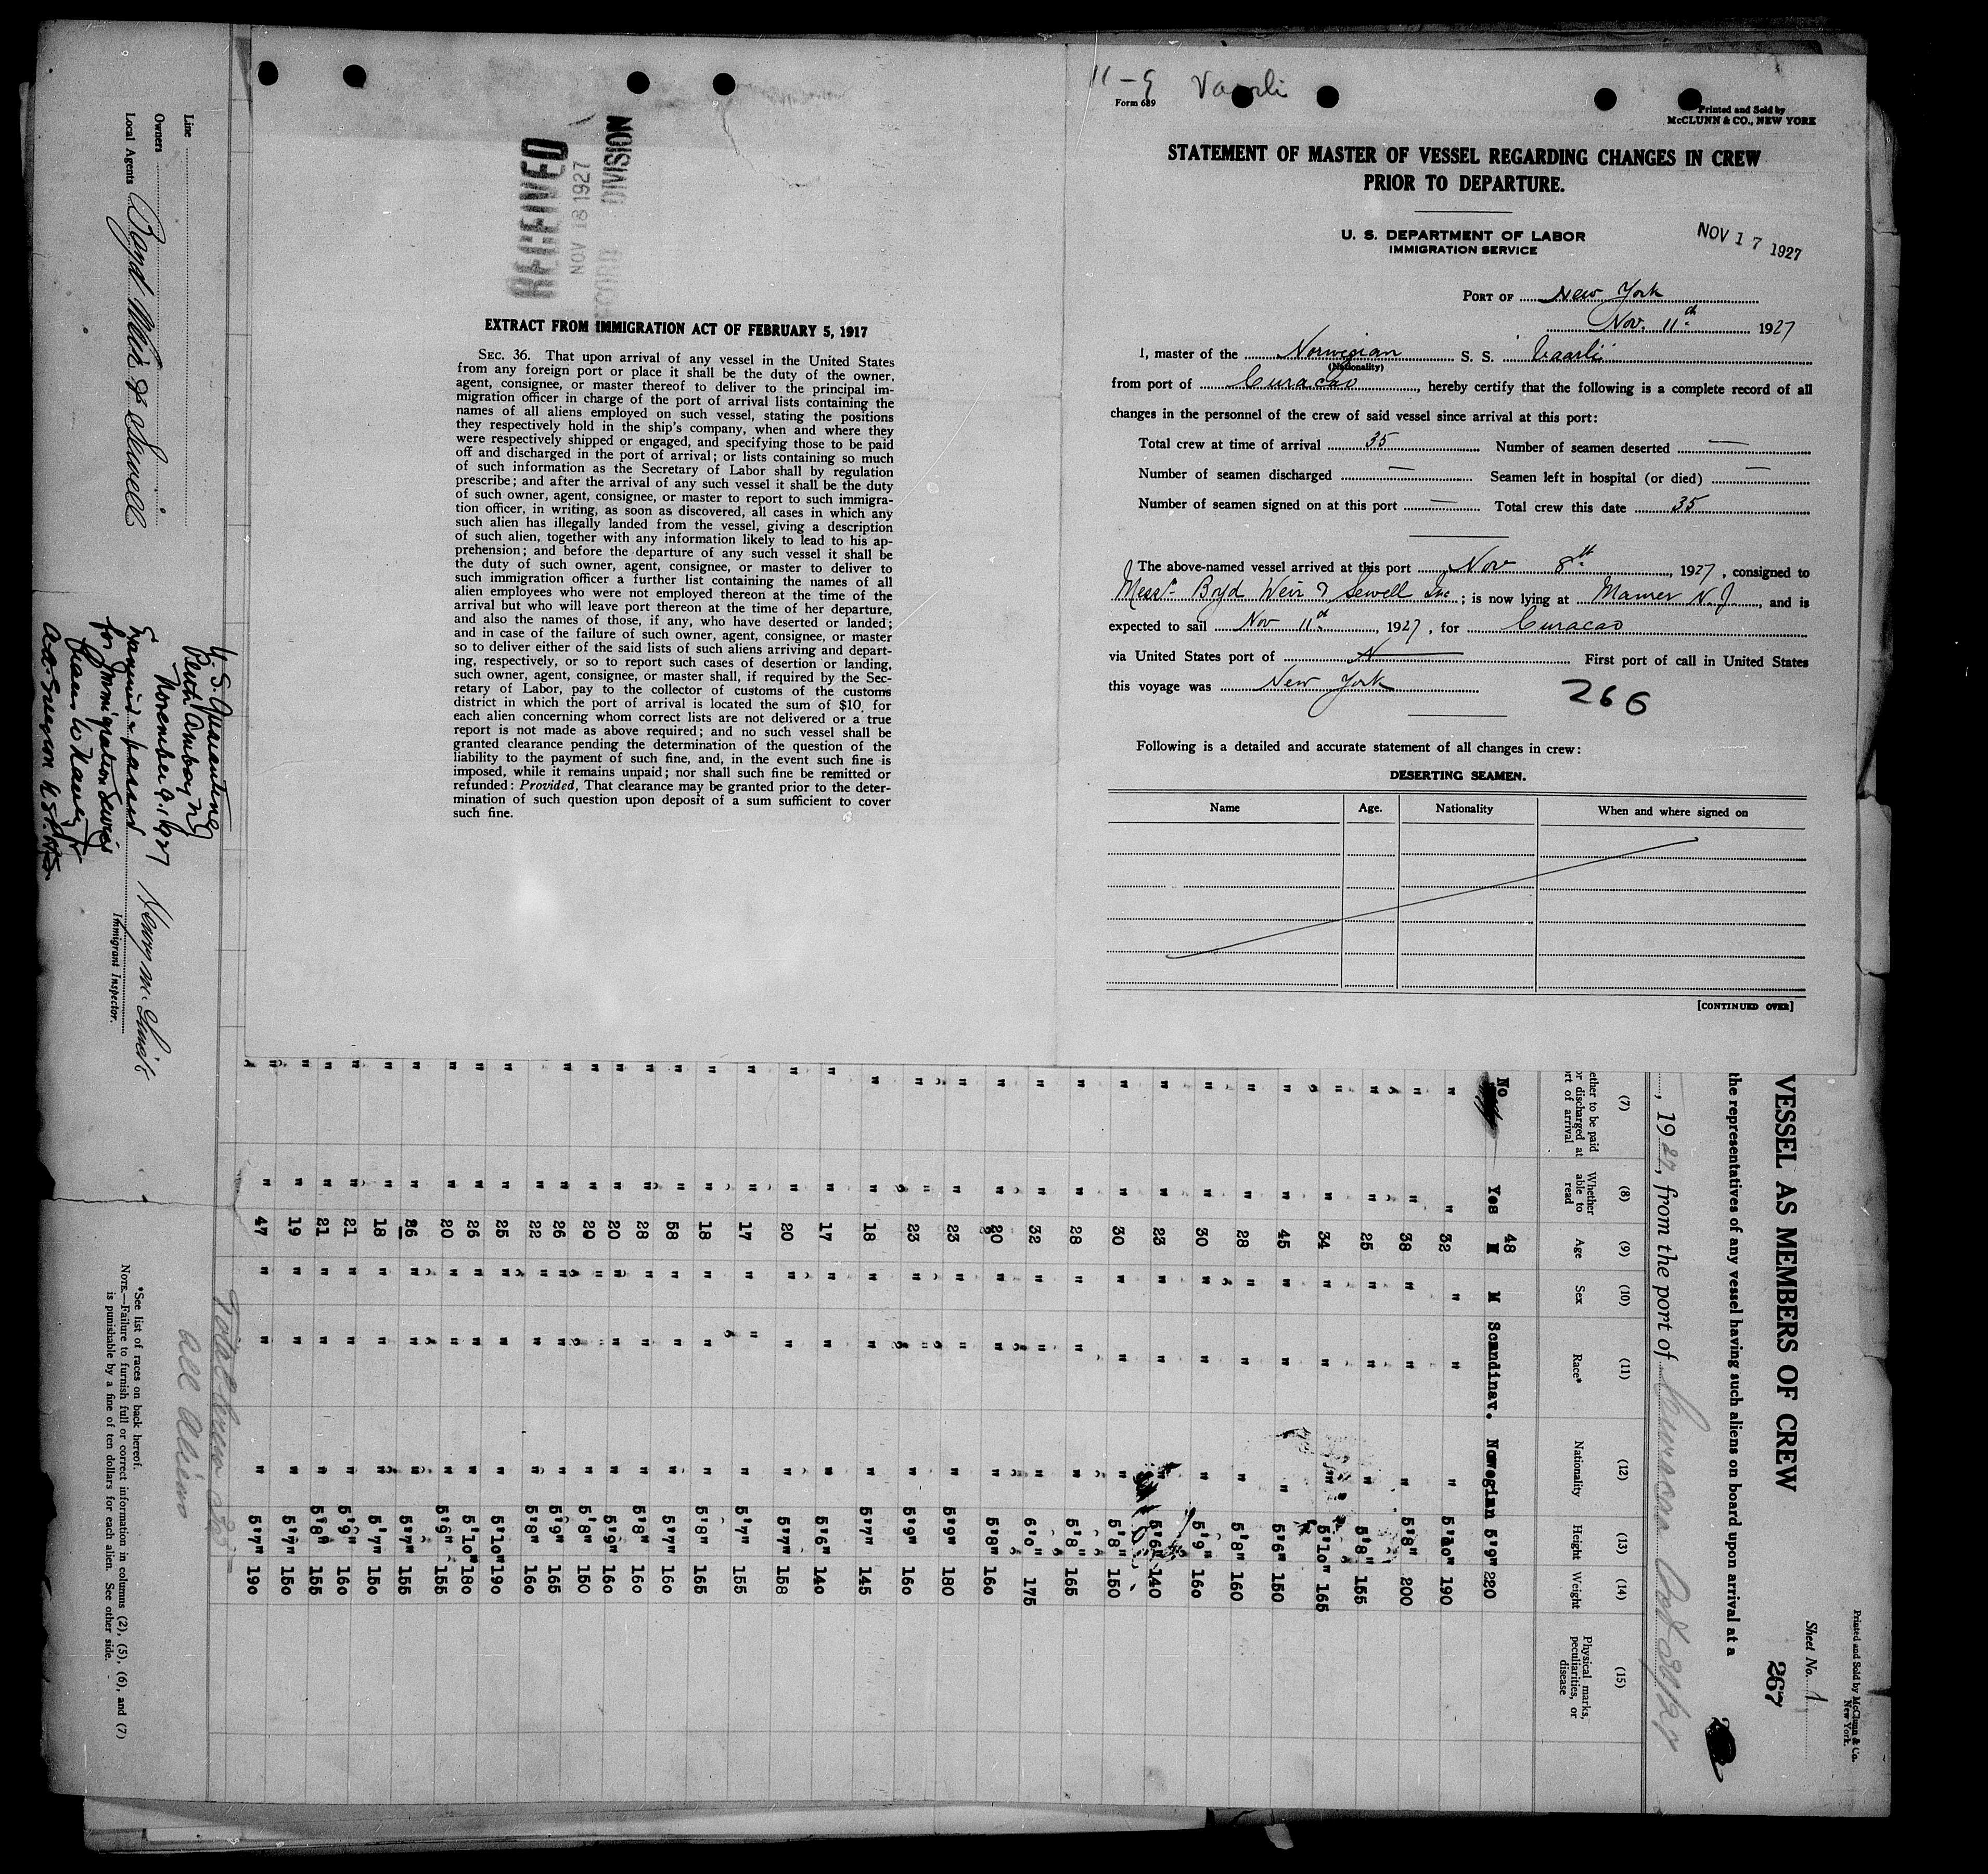 11-9 Vaarli
Form 689
Printed and Sold by
McCLUNN & CO., NEW YORK
STATEMENT OF MASTER OF VESSEL REGARDING CHANGES IN CREW
PRIOR TO DEPARTURE.
U. S. DEPARTMENT OF LABOR
IMMIGRATION SERVICE
NOV 17 1927
PORT OF New York
Nov. 11th 1927
I, master of the Norwegian S. S. Vaarli
(Nationality)
from port of Curacao, hereby certify that the following is a complete record of all
changes in the personnel of the crew of said vessel since arrival at this port:
Total crew at time of arrival 35 Number of seamen deserted —
Number of seamen discharged — Seamen left in hospital (or died) —
Number of seamen signed on at this port — Total crew this date 35
The above-named vessel arrived at this port Nov 8th, 1927, consigned to
Messrs Boyd Weir & Sewell Inc; is now lying at Maurer N.J., and is
expected to sail Nov 11th, 1927, for Curacao
via United States port of First port of call in United States
this voyage was New York
266
Following is a detailed and accurate statement of all changes in crew:
DESERTING SEAMEN.
Name Age. Nationality When and where signed on
[CONTINUED OVER]
RECEIVED
NOV 18 1927
RECORD DIVISION
EXTRACT FROM IMMIGRATION ACT OF FEBRUARY 5, 1917
SEC. 36. That upon arrival of any vessel in the United States
from any foreign port or place it shall be the duty of the owner,
agent, consignee, or master thereof to deliver to the principal im-
migration officer in charge of the port of arrival lists containing the
names of all aliens employed on such vessel, stating the positions
they respectively hold in the ship's company, when and where they
were respectively shipped or engaged, and specifying those to be paid
off and discharged in the port of arrival; or lists containing so much
of such information as the Secretary of Labor shall by regulation
prescribe; and after the arrival of any such vessel it shall be the duty
of such owner, agent, consignee, or master to report to such immigra-
tion officer, in writing, as soon as discovered, all cases in which any
such alien has illegally landed from the vessel, giving a description
of such alien, together with any information likely to lead to his ap-
prehension; and before the departure of any such vessel it shall be
the duty of such owner, agent, consignee, or master to deliver to
such immigration officer a further list containing the names of all
alien employees who were not employed thereon at the time of the
arrival but who will leave port thereon at the time of her departure,
and also the names of those, if any, who have deserted or landed;
and in case of the failure of such owner, agent, consignee, or master
so to deliver either of the said lists of such aliens arriving and depart-
ing, respectively, or so to report such cases of desertion or landing,
such owner, agent, consignee, or master shall, if required by the Sec-
retary of Labor, pay to the collector of customs of the customs
district in which the port of arrival is located the sum of $10. for
each alien concerning whom correct lists are not delivered or a true
report is not made as above required; and no such vessel shall be
granted clearance pending the determination of the question of the
liability to the payment of such fine, and, in the event such fine is
imposed, while it remains unpaid; nor shall such fine be remitted or
refunded: Provided, That clearance may be granted prior to the deter-
mination of such question upon deposit of a sum sufficient to cover
such fine.
Printed and Sold by McClunn & Co.
New York.
Sheet No. 1
267
VESSEL AS MEMBERS OF CREW
the representatives of any vessel having such aliens on board upon arrival at a
, 1927, from the port of Curacao Oct 30/27
(7) (8) (9) (10) (11) (12) (13) (14) (15)
ether to be paid
or discharged at
rt of arrival
Whether
able to
read
Age
Sex
Race*
Nationality
Height
Weight
Physical marks,
peculiarities, or
disease
No Yes 48 M M Scandinav. Nowegian 5'9" 220
" " 32 " " " 5'10" 190
" " 38 " " " 5'8" 200
" " 25 " " " 5'8" 155
" " 34 " " " 5'10" 165
" " 45 " " " 5'6" 150
" " 28 " " " 5'8" 160
" " 30 " " " 5'9" 160
" " 23 " " " 5'6" 140
" " 30 " " " 5'8" 150
" " 28 " " " 5'8" 165
" " 32 " " " 6'0" 175
" " 20 " " " 5'8" 160
" " 23 " " " 5'9" 180
" " 23 " " " 5'9" 160
" " 18 " " " 5'7" 145
" " 17 " " " 5'6" 140
" " 20 " " " 5'7" 158
" " 17 " " " 5'7" 155
" " 18 " " " 5'8" 165
" " 58 " " " 5'7" 160
" " 28 " " " 5'8" 160
" " 20 " " " 5'9" 160
" " 20 " " " 5'8" 150
" " 26 " " " 5'9" 165
" " 22 " " " 5'8" 160
" " 25 " " " 5'10" 190
" " 26 " " " 5'10" 180
" " 20 " " " 5'9" 165
" " 26 " " " 5'7" 155
" " 18 " " " 5'7" 150
" " 21 " " " 5'9" 160
" " 21 " " " 5'8" 155
" " 19 " " " 5'7" 150
" " 47 " " " 5'7" 190
Total Crew 35
all Aliens
*See list of races on back hereof.
NOTE.—Failure to furnish full or correct information in columns (2), (5), (6), and (7)
is punishable by a fine of ten dollars for each alien. See other side.
Line
Owners
Local Agents Boyd Weir & Sewell
U. S. Quarantine
Perth Amboy NJ
November 9, 1927
Examined & passed
for Immigration Service
Henry M. Smith
Immigrant Inspector.